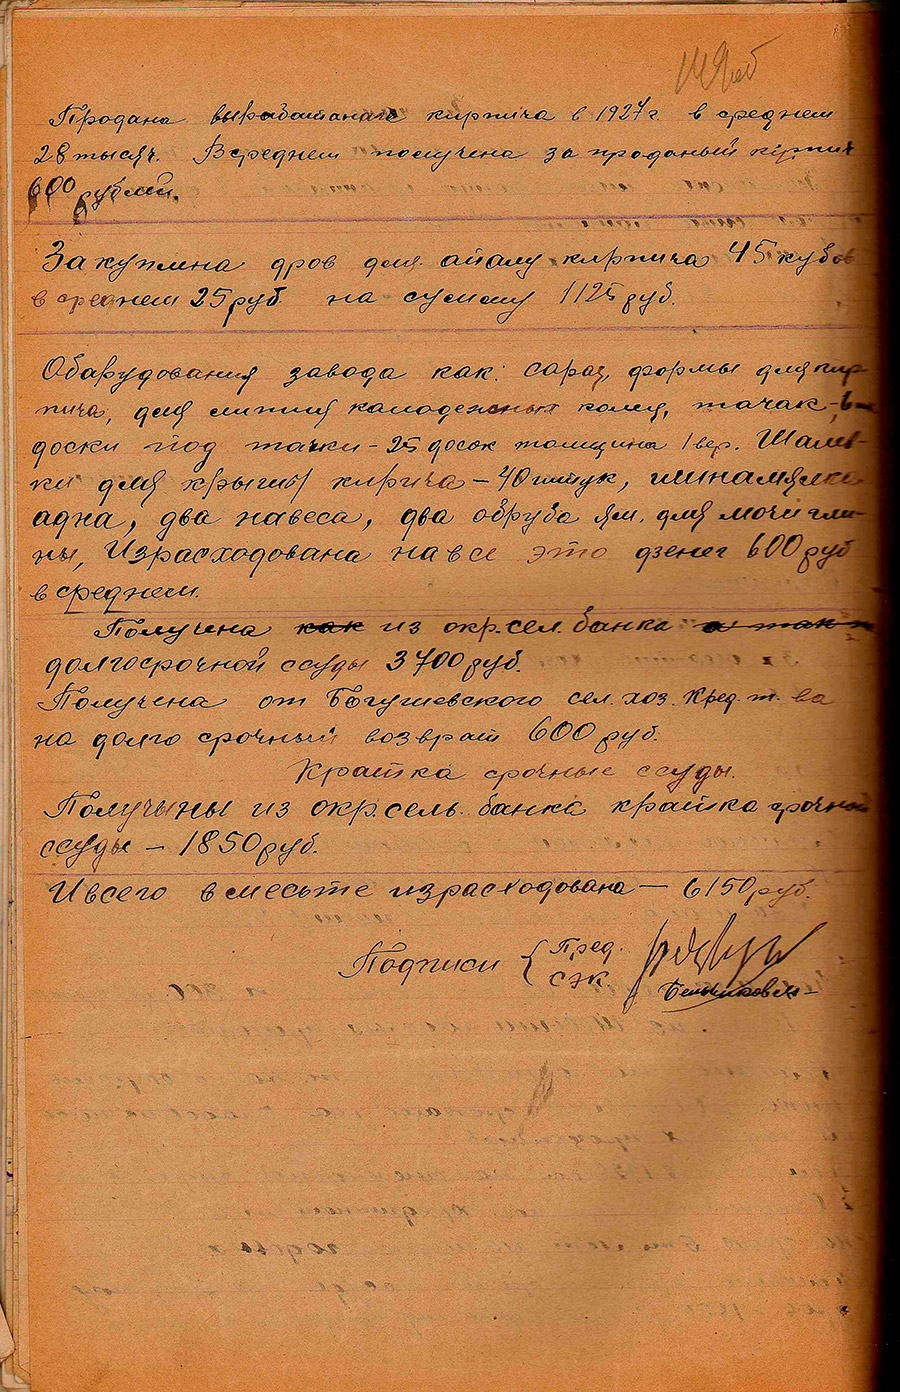 Продана выработаная кирпича в 1927 г. в среднем
28 тысяч. В среднем получена за проданый кірпич
600 рублей.
Закуплина дров для кирпича 45 кубов
в среднем 25 руб. на сумму 1125 руб.
Обарудования завода как: сарай, формы для кир-
пича, для лития колодежных колец, тачак-
доски под тачки - 25 досок толщина 1 вер. Шалев-
ки для крышы кирпича - 40 штук, глинамялка
адна, два навеса, два обруба ям. для мочи гли-
ны, Израсходована на всё это дзенег 600 руб
в среднем.
Получена как из окр. сел. банка а так
долгосрочной ссуды 3700 руб.
Получена от Богушевского сел. хоз. кред. т. ва
на долго срочный возврат 600 руб.
Кратка срочные ссуды.
Получыны из окр. сель. банка кратка срочной
ссуды - 1850 руб.
И всего вместьте израсходована - 6150 руб.
Подписи { Пред.
Сэк.